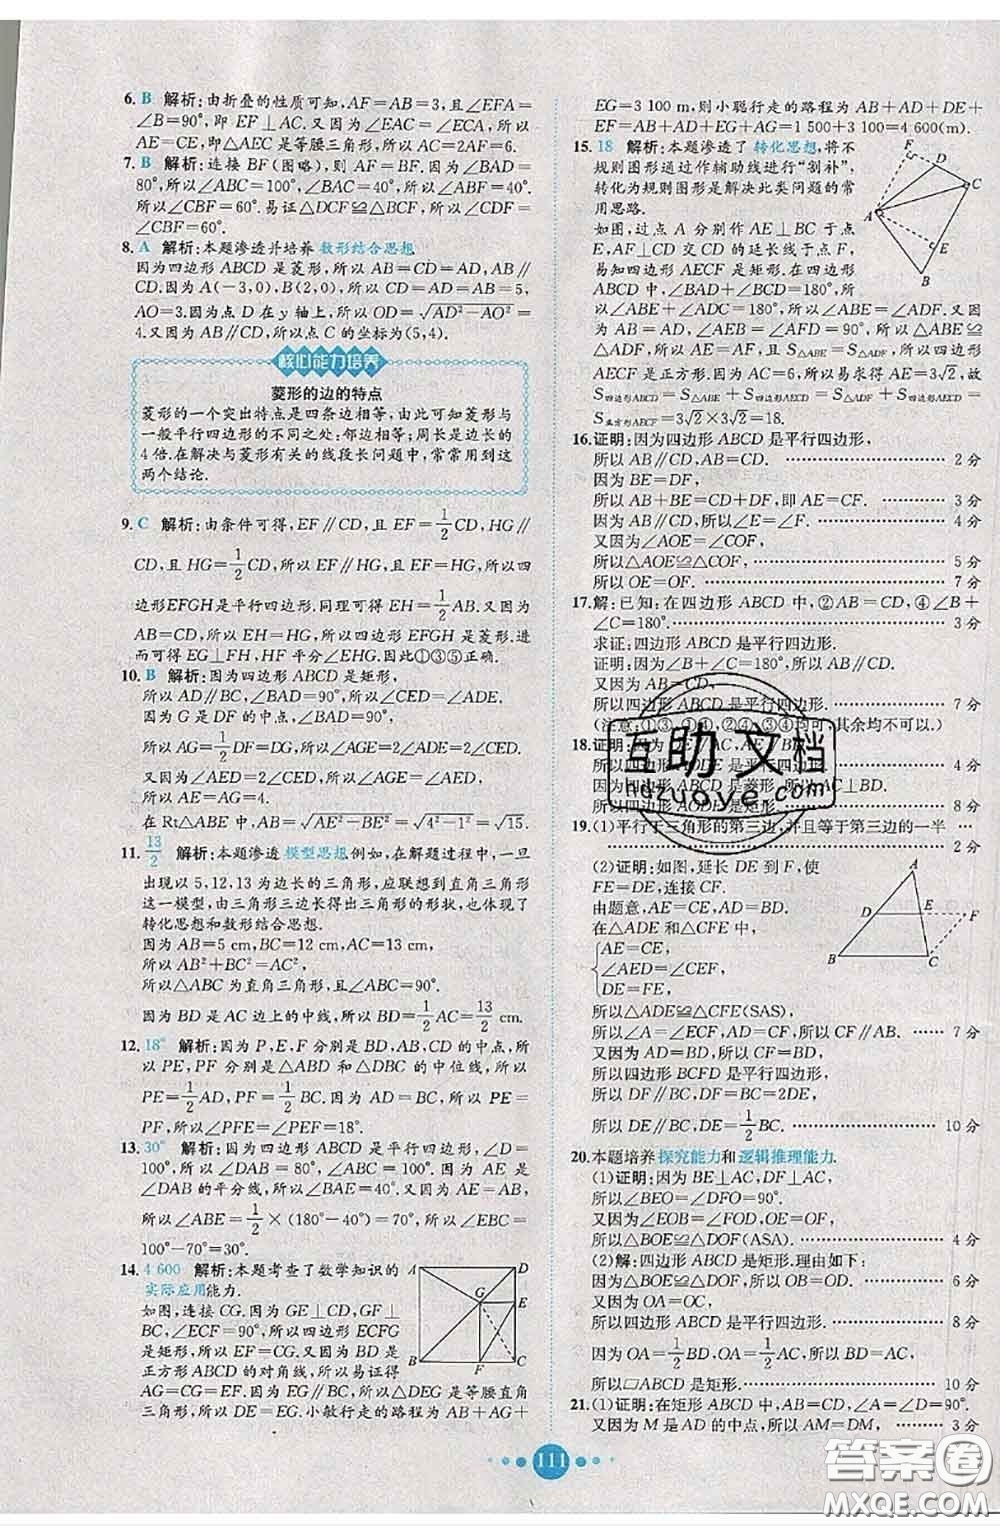 6. B 解析:由折叠的性质可知,AF=AB=3,且∠EFA=
∠B=90°,即 EF⊥AC.又因为∠EAC=∠ECA,所以
AE=CE,即△AEC是等腰三角形,所以AC=2AF=6.
7. B 解析:连接 BF(图略),则 AF=BF.因为∠BAD=
80°,所以∠ABC=100°,∠BAF=40°,所以∠ABF=40°.
所以∠CBF=60°.易证△DCF≌△BCF,所以∠CDF=
∠CBF=60°.
8. A 解析:本题渗透并培养 数形结合思想
因为四边形 ABCD 是菱形,所以 AB=CD=AD,AB∥
CD.因为 A(-3,0),B(2,0),所以 AD=CD=AB=5,
AO=3.因为点 D 在 y 轴上,所以 OD=√(AD²-AO²)=
4.又因为 AB∥CD,所以点 C 的坐标为(5,4).
核心能力培养
菱形的边的特点
菱形的一个突出特点是四条边相等,由此可知菱形与
一般平行四边形的不同之处:邻边相等;周长是边长的
4 倍.在解决与菱形有关的线段长问题中,常常用到这
两个结论.
9. C 解析:由条件可得,EF∥CD,且 EF=1/2 CD,HG∥
CD,且 HG=1/2 CD,所以 EF∥HG,EF=HG,所以四
边形EFGH是平行四边形.同理可得 EH=1/2 AB.又因为
AB=CD,所以 EH=HG,所以四边形 EFGH 是菱形.进
而可得 EG⊥FH,HF 平分∠EHG.因此①③⑤正确.
10. B 解析:因为四边形 ABCD 是矩形,
所以 AD∥BC,∠BAD=90°,所以∠CED=∠ADE.
因为 G 是 DF 的中点,∠BAD=90°,
所以 AG=1/2 DF=DG,所以∠AGE=2∠ADE=2∠CED
又因为∠AED=2∠CED,所以∠AGE=∠AED,
所以 AE=AG=4.
在 Rt△ABE 中,AB=√(AE²-BE²)=√(4²-1²)=√15.
11. 13/2 解析:本题渗透 模型思想.例如,在解题过程中,一旦
出现以 5,12,13 为边长的三角形,应联想到直角三角形
这一模型,由三角形三边长得出三角形的形状,也体现了
转化思想和数形结合思想.
因为 AB=5 cm,BC=12 cm,AC=13 cm,
所以 AB²+BC²=AC²,
所以△ABC 为直角三角形,且∠ABC=90°.
因为 BD 是 AC 边上的中线,所以 BD=1/2 AC=13/2 cm.
12. 18° 解析:因为 P,E,F 分别是 BD,AB,CD 的中点,所
以 PE,PF 分别是△ABD 和△DBC 的中位线,所以
PE=1/2 AD,PF=1/2 BC.又因为 AD=BC,所以 PE=
PF,所以∠PFE=∠PEF=18°.
13. 30° 解析:因为四边形 ABCD 是平行四边形,∠D=
100°,所以∠DAB=80°,∠ABC=100°.又因为 AE 是
∠DAB 的平分线,所以∠BAE=40°.又因为 AE=AB,
所以∠ABE=1/2×(180°-40°)=70°,所以∠EBC=
100°-70°=30°.
14. 4 600 解析:本题考查了数学知识的
实际应用能力.
如图,连接 CG.因为 GE⊥CD,GF⊥
BC,∠FCE=90°,所以四边形 ECFG
是矩形,所以 EF=CG.又因为 BD 是
正方形 ABCD 的对角线,所以易证得
AG=CG=EF.因为∠EDG=45°,所以△DEG 是等腰直角三角形,
所以 DE=GE.小敏行走的路程为 AB+AG+
A D G E B F C
EG=3 100 m,则小聪行走的路程为 AB+AD+DE+
EF=AB+AD+EG+AG=1 500+3 100=4 600(m).
15. 18 解析:本题渗透了 转化思想,将不
规则图形通过作辅助线进行“割补”,
转化为规则图形是解决此类问题的常
用思路.
如图,过点 A 分别作 AE⊥BC 于点
E,AF⊥CD 交 CD 的延长线于点 F,
易知四边形 AECF 是矩形.在四边形
ABCD 中,因为∠BAD+∠BCD=180°,所
以∠ABC+∠ADC=180°,所以∠ABE=∠ADF.又因
为 AB=AD,∠AEB=∠AFD=90°,所以△ABE≌
△ADF,所以 AE=AF,且 S△ABE=S△ADF,所以四边形
AECF 是正方形.因为 AE=3√2,所以 AE=AF=3√2,故
S四边形ABCD=S△ABE+S四边形AECD=S△ADF+S四边形AECD=
S正方形AECF=3√2×3√2=18.
F D C A E B
16. 证明:因为四边形 ABCD 是平行四边形,
所以 AB∥CD,AB=CD. 2 分
因为 BE=DF,
所以 AB+BE=CD+DF,即 AE=CF. 3 分
因为 AB∥CD,所以∠E=∠F. 4 分
又因为∠AOE=∠COF,
所以△AOE≌△COF, 5 分
所以 OE=OF. 7 分
17. 解:已知:在四边形 ABCD 中,②AB=CD,④∠B+
∠C=180°. 3 分
求证:四边形 ABCD 是平行四边形.
证明:因为∠B+∠C=180°,所以 AB∥CD.
又因为 AB=CD,
所以四边形 ABCD 是平行四边形. 7 分
(注意:①③,①④,②④,③④均可,其余均不可以.)
18. 证明:因为 DE∥AC,AE∥BD,
所以四边形 AODE 是平行四边形. 4 分
因为四边形 ABCD 是菱形,所以 AC⊥BD,
所以四边形 AODE 是矩形. 8 分
19. (1)平行于三角形的第三边,并且等于第三边的一半
2 分
(2)证明:如图,延长 DE 到 F,使
FE=DE,连接 CF.
由题意,AE=CE,AD=BD.
在△ADE 和△CFE 中,
AE=CE,
∠AED=∠CEF,
DE=FE,
A D E F B C
所以△ADE≌△CFE(SAS),
所以∠A=∠ECF,AD=CF,所以 CF∥AB. 7 分
又因为 AD=BD,所以 CF=BD,
所以四边形 BCFD 是平行四边形,
所以 DF∥BC,DF=BC=2DE,
所以 DE∥BC,DE=1/2 BC. 10 分
20. 本题培养 探究能力和 逻辑推理能力.
(1)证明:因为 BE⊥AC,DF⊥AC,
所以∠BEO=∠DFO=90°.
又因为∠EOB=∠FOD,OE=OF,
所以△BOE≌△DOF(ASA). 4 分
(2)解:四边形 ABCD 是矩形.理由如下:
因为△BOE≌△DOF,所以 OB=OD. 6 分
又因为 OA=OC,
所以四边形 ABCD 是平行四边形. 8 分
因为 OA=1/2 BD,OA=1/2 AC,所以 BD=AC,
所以□ABCD 是矩形. 10 分
21. (1)证明:在矩形 ABCD 中,AB=CD,∠A=∠D=90°.
又因为 M 是 AD 的中点,所以 AM=DM, 3 分
111
互助文档
hazuoye.com
答案圈
MXQE.COM